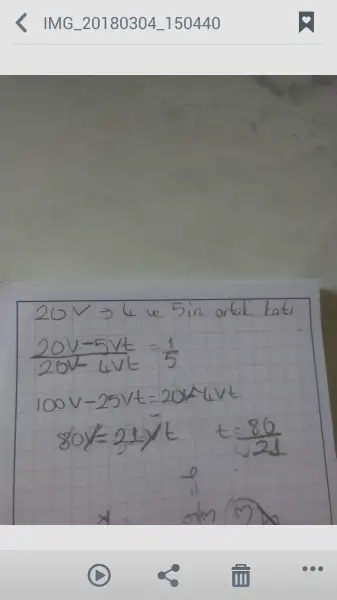 IMG_20180304_150440
20V → 4 ve 5in ortak katı
20V-5Vt / 20V-4Vt = 1/5
100V-25Vt=20V-4Vt
80V=21Vt t=80/21